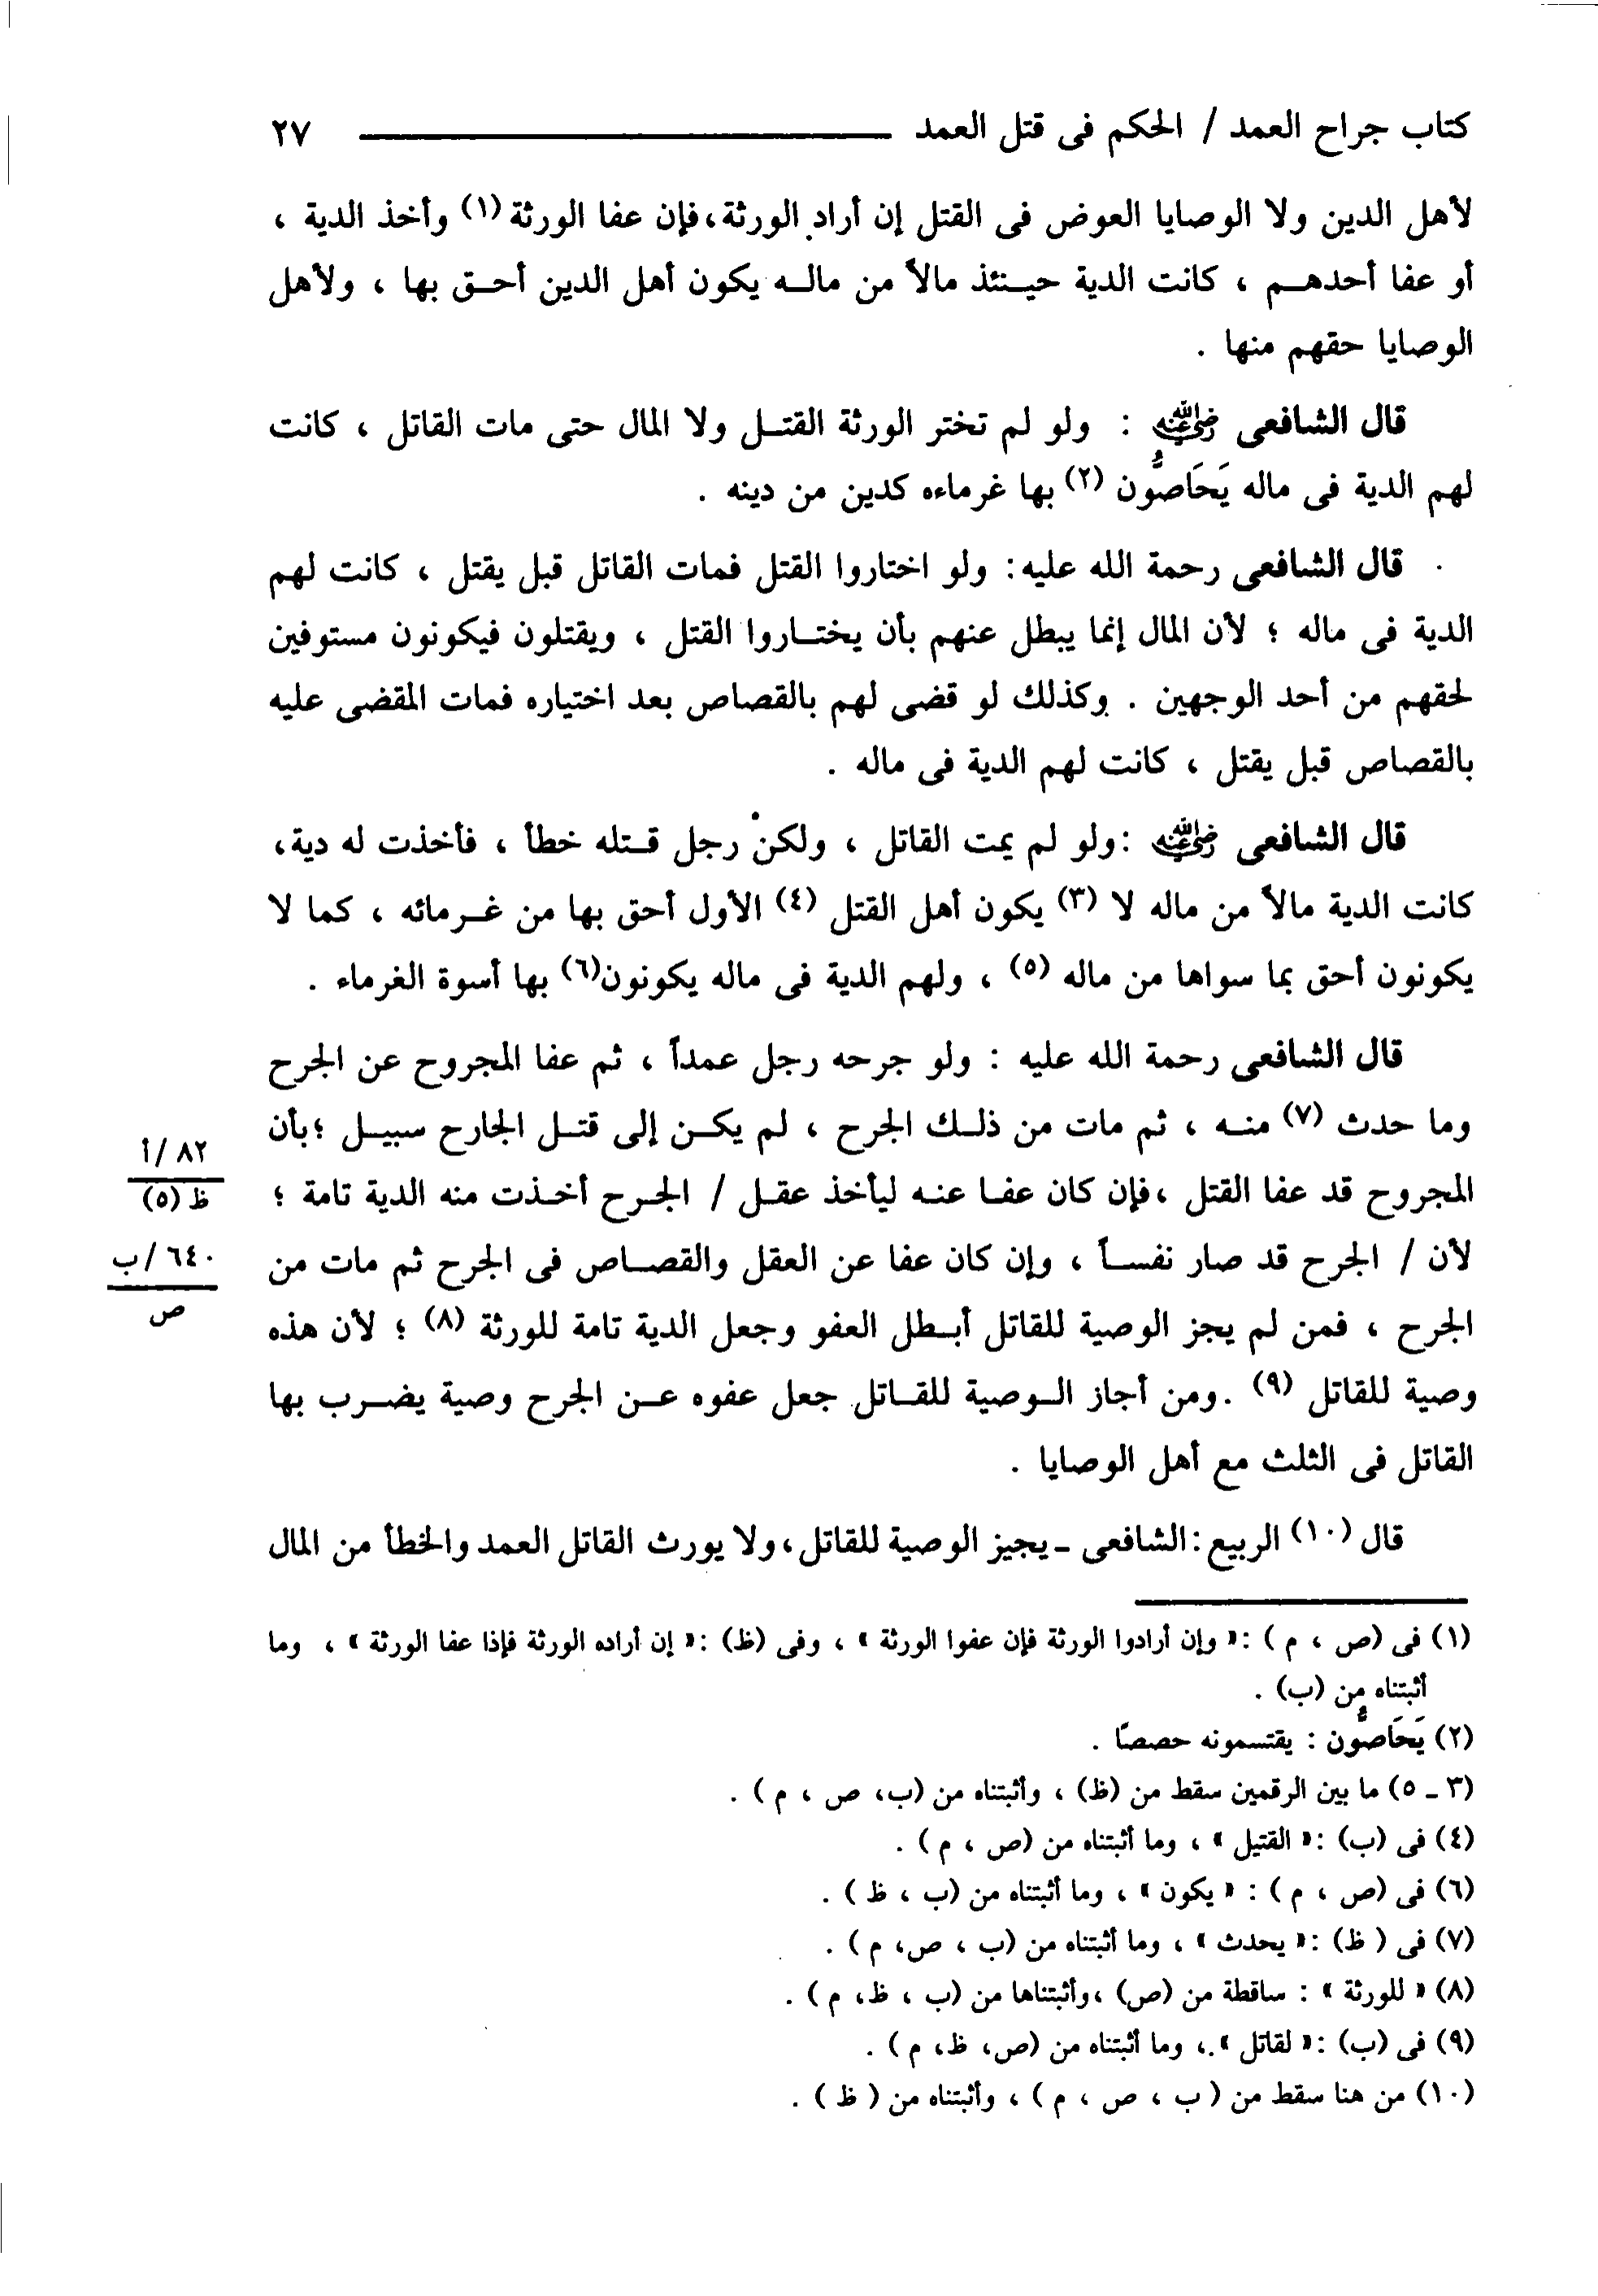 كتاب جراح العمد / الحكم فى قتل العمد ٢٧
لأهل الدين ولا الوصايا العوض فى القتل إن أراد الورثة، فإن عفا الورثة (١) وأخذ الدية ،
أو عفا أحدهم ، كانت الدية حينئذ مالاً من ماله يكون أهل الدين أحق بها ، ولأهل
الوصايا حقهم منها .
قال الشافعى رضي الله عنه : ولو لم تختر الورثة القتل ولا المال حتى مات القاتل ، كانت
لهم الدية فى ماله يَحَاصُّون (٢) بها غرماءه كدين من دينه .
قال الشافعى رحمة الله عليه: ولو اختاروا القتل فمات القاتل قبل يقتل ، كانت لهم
الدية فى ماله ؛ لأن المال إنما يبطل عنهم بأن يختاروا القتل ، ويقتلون فيكونون مستوفين
لحقهم من أحد الوجهين . وكذلك لو قضى لهم بالقصاص بعد اختياره فمات المقضى عليه
بالقصاص قبل يقتل ، كانت لهم الدية فى ماله .
قال الشافعى رضي الله عنه :ولو لم يمت القاتل ، ولكن رجل قتله خطأ ، فأخذت له دية،
كانت الدية مالاً من ماله لا (٣) يكون أهل القتل (٤) الأول أحق بها من غرمائه ، كما لا
يكونون أحق بما سواها من ماله (٥) ، ولهم الدية فى ماله يكونون(٦) بها أسوة الغرماء .
قال الشافعى رحمة الله عليه : ولو جرحه رجل عمداً ، ثم عفا المجروح عن الجرح
وما حدث (٧) منه ، ثم مات من ذلك الجرح ، لم يكن إلى قتل الجارح سبيل ؛بأن
المجروح قد عفا القتل ،فإن كان عفا عنه ليأخذ عقل / الجرح أخذت منه الدية تامة ؛
لأن / الجرح قد صار نفساً ، وإن كان عفا عن العقل والقصاص فى الجرح ثم مات من
الجرح ، فمن لم يجز الوصية للقاتل أبطل العفو وجعل الدية تامة للورثة (٨) ؛ لأن هذه
وصية للقاتل (٩) .ومن أجاز الوصية للقاتل جعل عفوه عن الجرح وصية يضرب بها
القاتل فى الثلث مع أهل الوصايا .
قال (١٠) الربيع :الشافعى ـ يجيز الوصية للقاتل، ولا يورث القاتل العمد والخطأ من المال
٨٢ /أ
ظ (٥)
٦٤٠ /ب
ص
(١) فى (ص ، م ) :« وإن أرادوا الورثة فإن عفوا الورثة » ، وفى (ظ) :« إن أراده الورثة فإذا عفا الورثة » ، وما
أثبتناه من (ب) .
(٢) يَحَاصُّون : يقتسمونه حصصًا .
(٣ ـ ٥) ما بين الرقمين سقط من (ظ) ، وأثبتناه من (ب، ص ، م ) .
(٤) فى (ب) :« القتيل » ، وما أثبتناه من (ص ، م ) .
(٦) فى (ص ، م ) : « يكون » ، وما أثبتناه من (ب ، ظ ) .
(٧) فى ( ظ) :« يحدث » ، وما أثبتناه من (ب ، ص، م ) .
(٨) « للورثة » : ساقطة من (ص) ،وأثبتناها من (ب ، ظ، م ) .
(٩) فى (ب) :« لقاتل »، وما أثبتناه من (ص، ظ، م ) .
(١٠) من هنا سقط من ( ب ، ص ، م ) ، وأثبتناه من ( ظ ) .